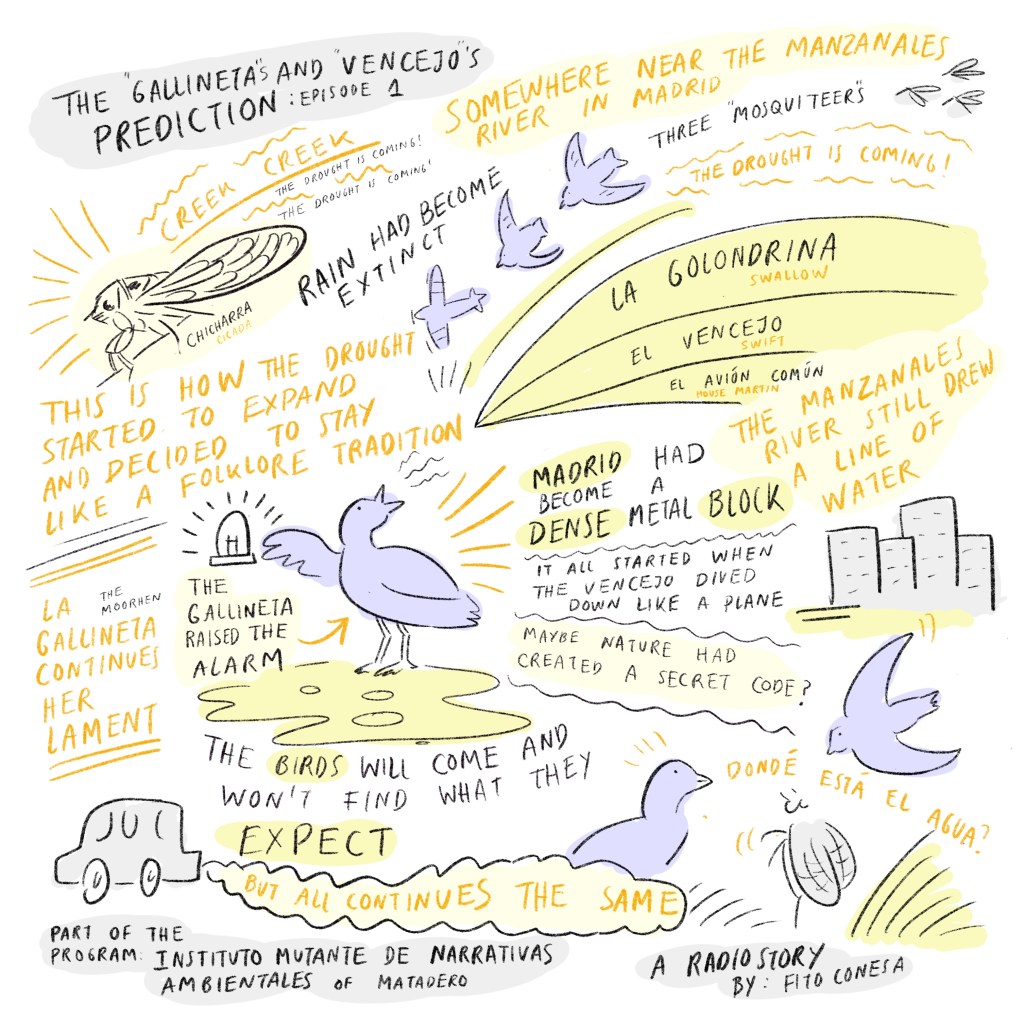 THE "GALLINETA"S AND "VENCEJO"S
PREDICTION : EPISODE 1
SOMEWHERE NEAR THE MANZANALES
RIVER IN MADRID
THREE "MOSQUITEER"S
THE DROUGHT IS COMING!
CREEK CREEK
THE DROUGHT IS COMING!
THE DROUGHT IS COMING!
RAIN HAD BECOME
EXTINCT
CHICHARRA
CICADA
LA GOLONDRINA
SWALLOW
EL VENCEJO
SWIFT
EL AVIÓN COMÚN
HOUSE MARTIN
THIS IS HOW THE DROUGHT
STARTED TO EXPAND
AND DECIDED TO STAY
LIKE A FOLKLORE TRADITION
THE MANZANALES
RIVER STILL DREW
A LINE OF
WATER
MADRID HAD
BECOME A
DENSE METAL BLOCK
IT ALL STARTED WHEN
THE VENCEJO DIVED
DOWN LIKE A PLANE
MAYBE NATURE HAD
CREATED A SECRET CODE?
H
THE
GALLINETA
RAISED THE
ALARM
LA THE MOORHEN
GALLINETA
CONTINUES
HER
LAMENT
THE BIRDS WILL COME AND
WON'T FIND WHAT THEY
EXPECT
DONDÉ ESTÁ EL AGUA?
BUT ALL CONTINUES THE SAME
PART OF THE
PROGRAM: INSTITUTO MUTANTE DE NARRATIVAS
AMBIENTALES OF MATADERO
A RADIO STORY
BY: FITO CONESA